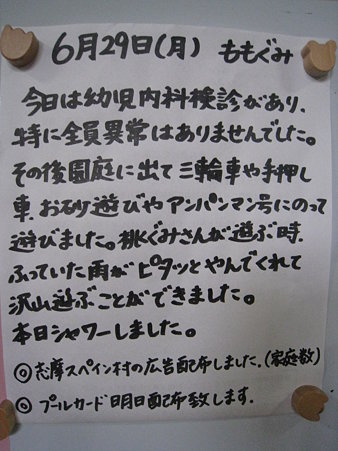 6月29日(月) ももぐみ
今日は幼児内科検診があり、
特に全員異常はありませんでした。
その後園庭に出て三輪車や手押し
車、お砂遊びやアンパンマン号にのって
遊びました。桃ぐみさんが遊ぶ時、
ふっていた雨がピタッとやんでくれて
沢山遊ぶことができました。
本日シャワーしました。
◎志摩スペイン村の広告配布しました。(家庭数)
◎プールカード明日配布致します。